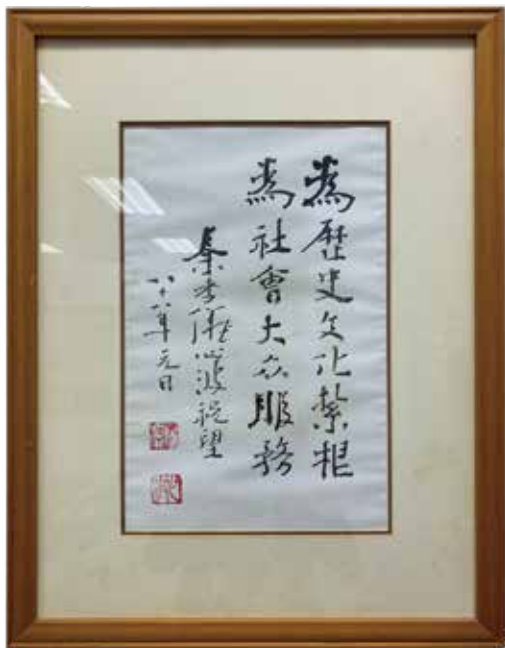 為歷史文化紮根
為社會大众服務
秦孝儀心波祝望
八十八年元日